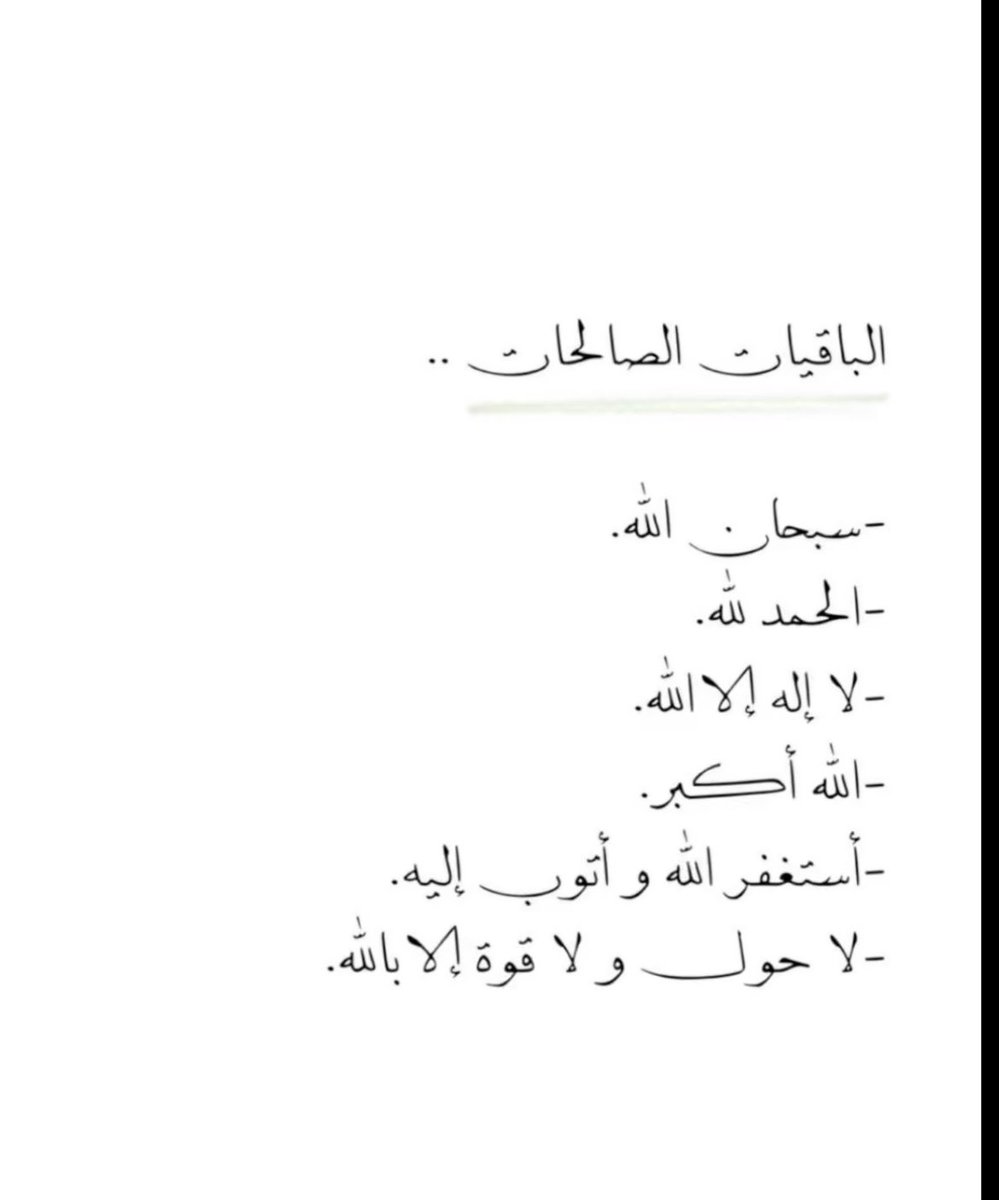 الباقيات الصالحات ..
-سبحان الله.
-الحمد لله.
-لا إله إلا الله.
-الله أكبر.
-أستغفر الله و أتوب إليه.
-لا حول و لا قوة إلا بالله.